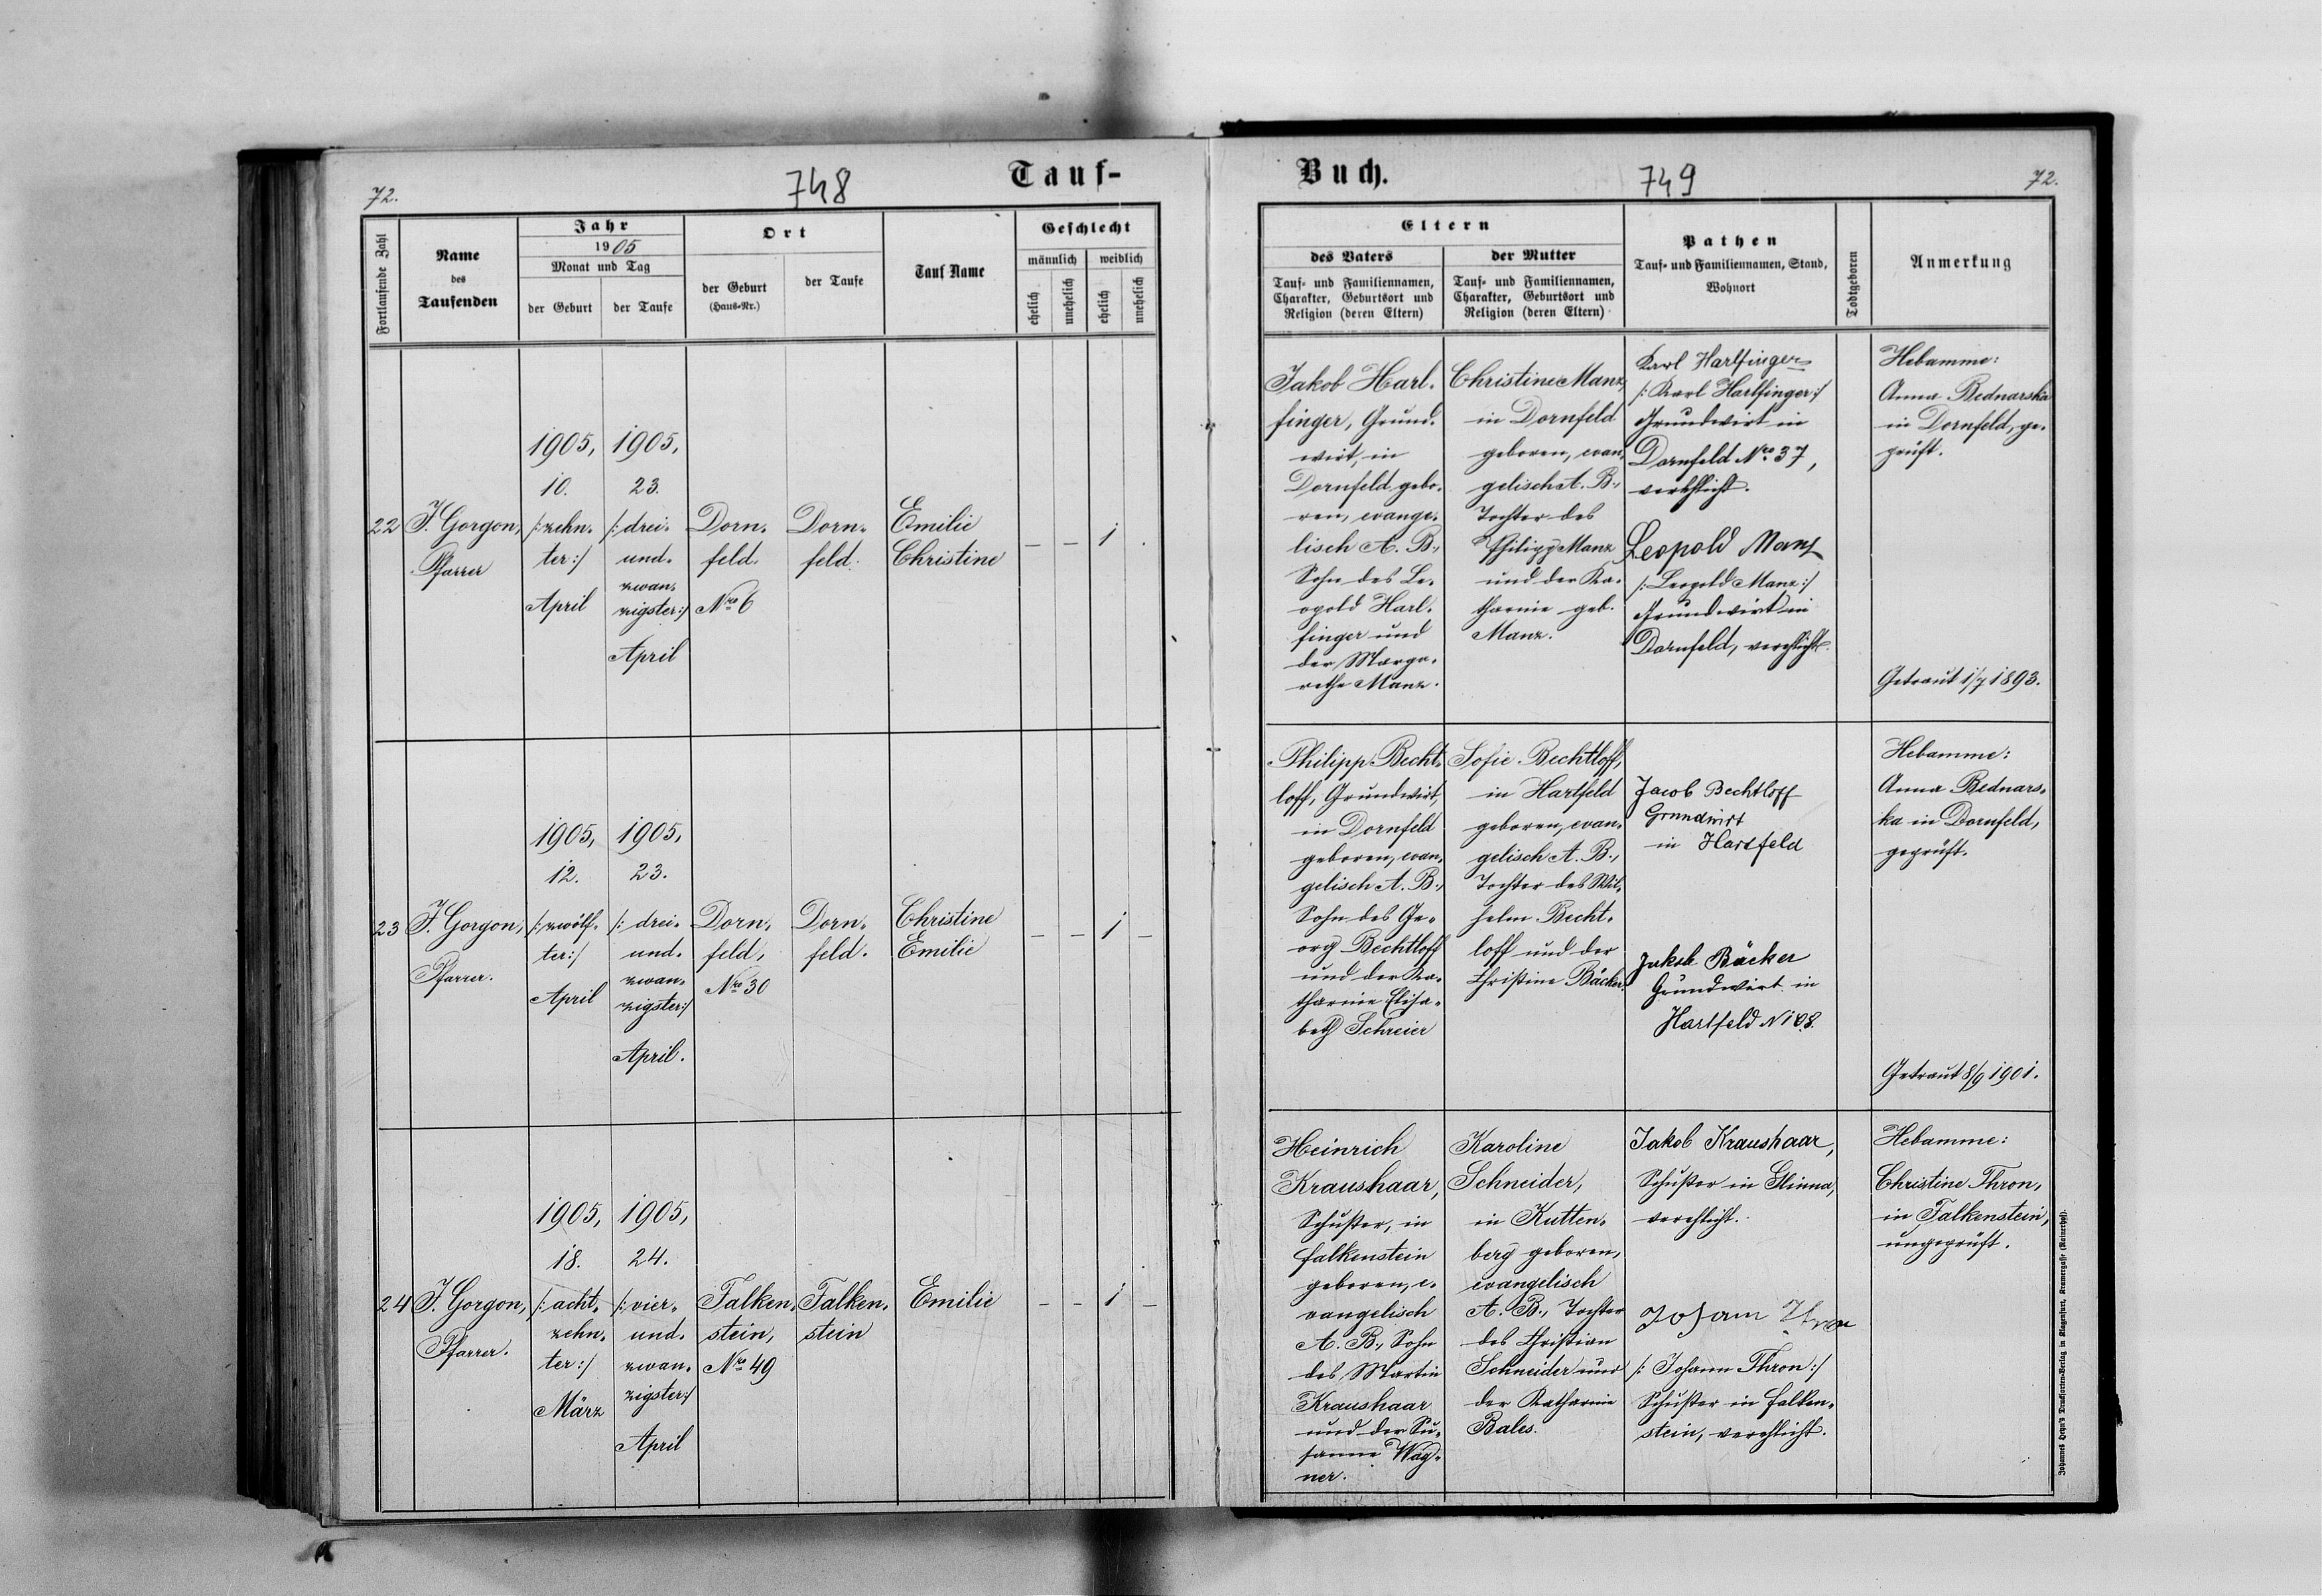 72.
748
Tauf-
Fortlaufende Zahl
Name
des
Taufenden
Jahr
1905
Monat und Tag
der Geburt
der Taufe
Ort
der Geburt
(Haus-Nr.)
der Taufe
Tauf Name
Geschlecht
männlich
weiblich
ehelich
unehelich
ehelich
unehelich
22
J. Gorgon,
Pfarrer
1905,
10.
/: zehn-
ter:/
April
1905,
23.
/: drei-
und-
zwan-
zigster:/
April
Dorn-
feld.
Nro 6
Dorn-
feld.
Emilie
Christine
— — 1 .
23
J. Gorgon,
Pfarrer.
1905,
12.
/: zwölf-
ter:/
April
1905,
23.
/: drei-
und-
zwan-
zigster:/
April.
Dorn-
feld,
Nro 30
Dorn-
feld.
Christine
Emilie
— — 1 —
24
J. Gorgon,
Pfarrer.
1905,
18.
/: acht-
zehn-
ter:/
März
1905,
24.
/: vier-
und-
zwan-
zigster:/
April
Falken-
stein,
Nro 49
Falken-
stein
Emilie
— — 1 —
Buch.
749
72.
Eltern
des Vaters
Tauf- und Familiennamen,
Charakter, Geburtsort und
Religion (deren Eltern)
der Mutter
Tauf- und Familiennamen,
Charakter, Geburtsort und
Religion (deren Eltern)
Pathen
Tauf- und Familiennamen, Stand,
Wohnort
Todtgeboren
Anmerkung
Jakob Harl-
finger, Grund-
wirt, in
Dornfeld gebo-
ren, evange-
lisch A. B.,
Sohn des Le-
opold Harl-
finger und
der Marga-
rethe Manz.
Christine Manz,
in Dornfeld
geboren, evan-
gelisch A. B.,
Tochter des
Philipp Manz
und der Ka-
tharine geb.
Manz.
Karl Harlfinger
/: Karl Harlfinger:/
Grundwirt in
Dornfeld Nro 37,
verehlicht.
Leopold Manz
/: Leopold Manz:/
Grundwirt in
Dornfeld, verehlicht.
Hebamme:
Anna Bednarska
in Dornfeld, ge-
prüft.
Getraut 1/7 1893.
Philipp Becht-
loff, Grundwirt,
in Dornfeld
geboren, evan-
gelisch A. B.,
Sohn des Ge-
org Bechtloff
und der Ka-
tharine Elisa-
beth Schreier
Sofie Bechtloff,
in Hartfeld
geboren, evan-
gelisch A. B.,
Tochter des Wil-
helm Becht-
loff und der
Christine Bäcker.
Jacob Bechtloff
Grundwirt
in Hartfeld
Jakob Bäcker
Grundwirt in
Hartfeld N 108.
Hebamme:
Anna Bednars-
ka in Dornfeld,
geprüft.
Getraut 8/9 1901.
Heinrich
Kraushaar,
Schuster, in
Falkenstein
geboren, e-
vangelisch
A. B., Sohn
des Martin
Kraushaar
und der Su-
sanne Wag-
ner.
Karoline
Schneider,
in Kutten-
berg geboren,
evangelisch
A. B., Tochter
des Christian
Schneider und
der Katharine
Bales.
Jakob Kraushaar,
Schuster in Glinna,
verehlicht.
Johann Thron
/: Johann Thron:/
Schuster in Falken-
stein, verehlicht.
Hebamme:
Christine Thron,
in Falkenstein,
ungeprüft.
Johannes Heyn's Drucksorten-Verlag in Klagenfurt, Kramergasse (Rainerhof).